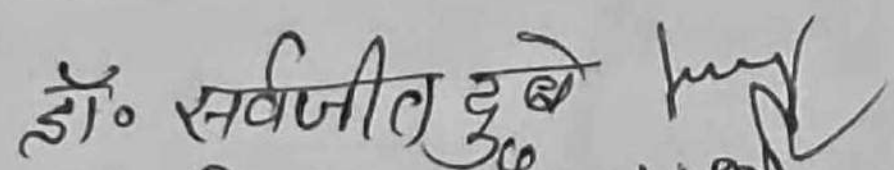 डॉ॰ सर्वजीत दुबे